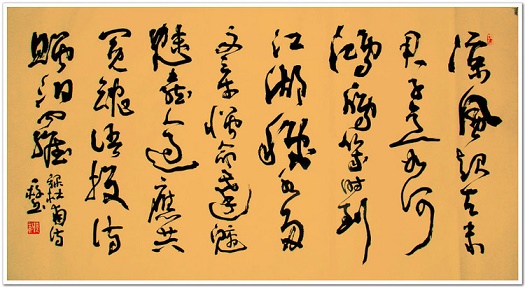 涼風起天末
君子意如何
鴻雁幾時到
江湖秋水多
文章憎命達魑
魅喜人過應共
冤魂語投詩
贈汨羅
錄杜甫詩